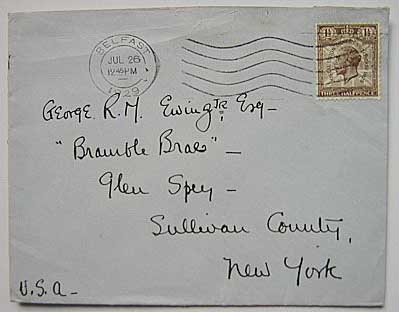 BELFAST
JUL 26
12.45 PM
1929
1½ 1½
THREE HALFPENCE
George R. M. Ewing Jr., Esq —
"Bramble Braes" —
Glen Spey —
Sullivan County,
New York
U.S.A —